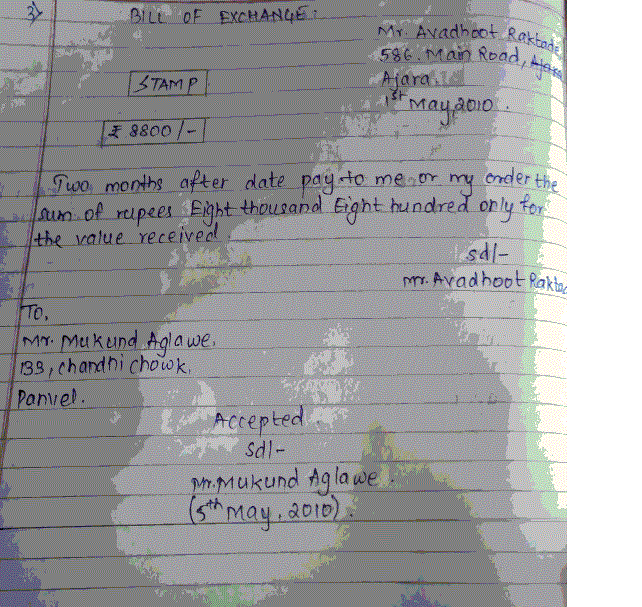 3)
BILL OF EXCHANGE:
Mr. Avadhoot Raktade
586. Main Road,
STAMP
Ajara.
1st May 2010.
₹ 8800/-
Two months after date pay to me or my order the
sum of rupees Eight thousand Eight hundred only for
the value received.
sd/-
mr. Avadhoot Raktad
To,
Mr. Mukund Aglawe.
133, chandni chowk.
Panvel.
Accepted.
sd/-
Mr. Mukund Aglawe.
(5th May, 2010).